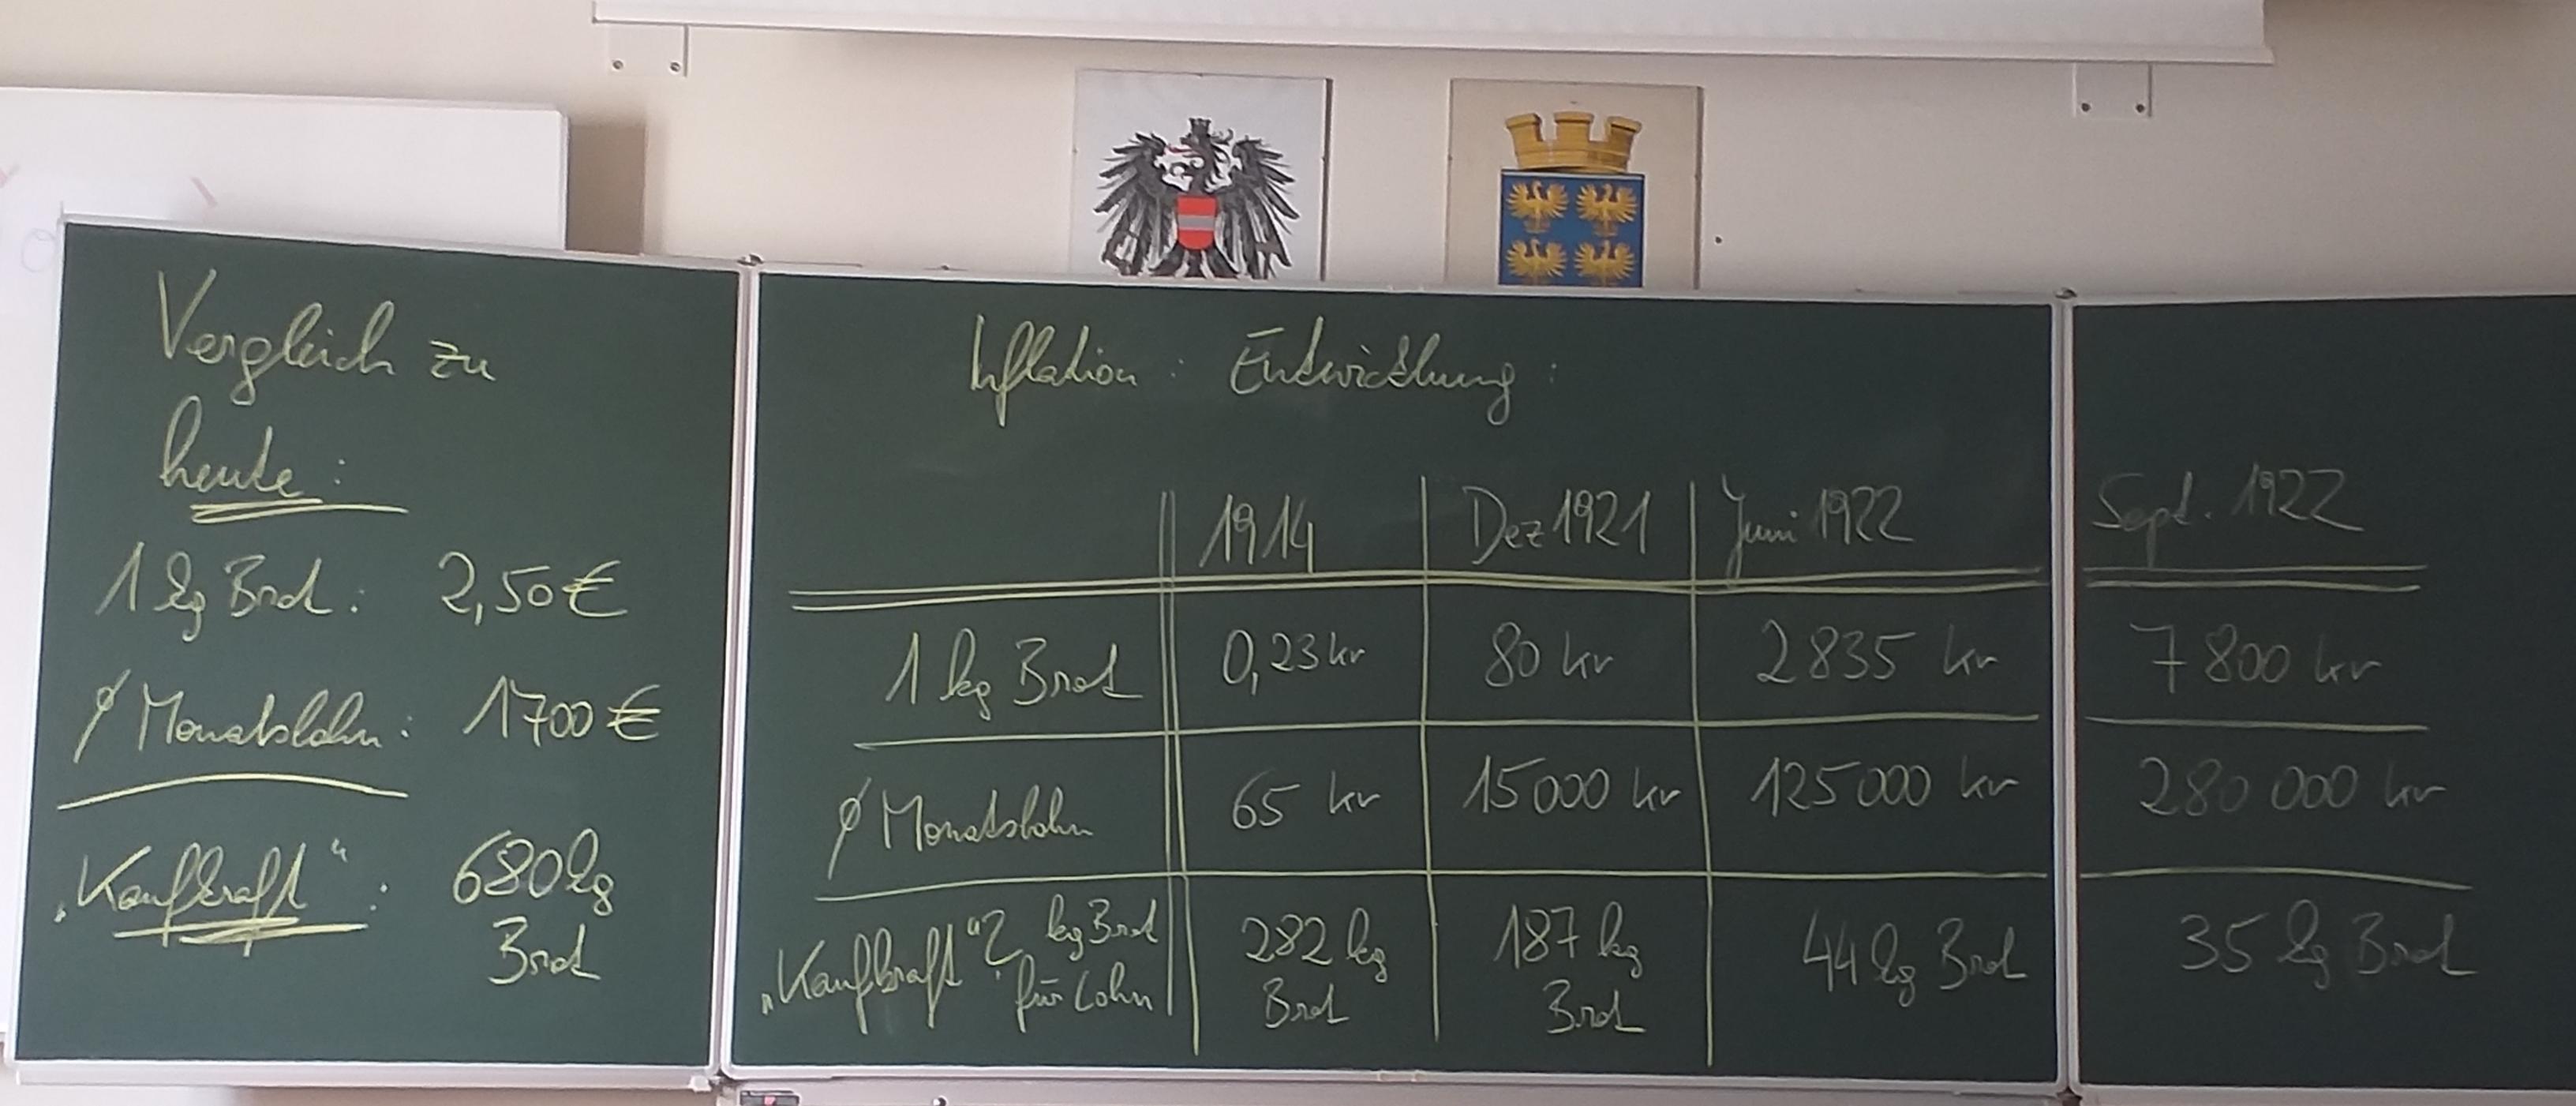 Vergleich zu
heute:
1 kg Brot: 2,50 €
∅ Monatslohn: 1700 €
„Kaufkraft“: 680 kg
Brot
Inflation: Entwicklung:
1914 Dez 1921 Juni 1922 Sept. 1922
1 kg Brot 0,23 kr 80 kr 2 835 kr 7 800 kr
∅ Monatslohn 65 kr 15 000 kr 125 000 kr 280 000 kr
„Kaufkraft“? kg Brot 282 kg 187 kg 44 kg Brot 35 kg Brot
für Lohn Brot Brot